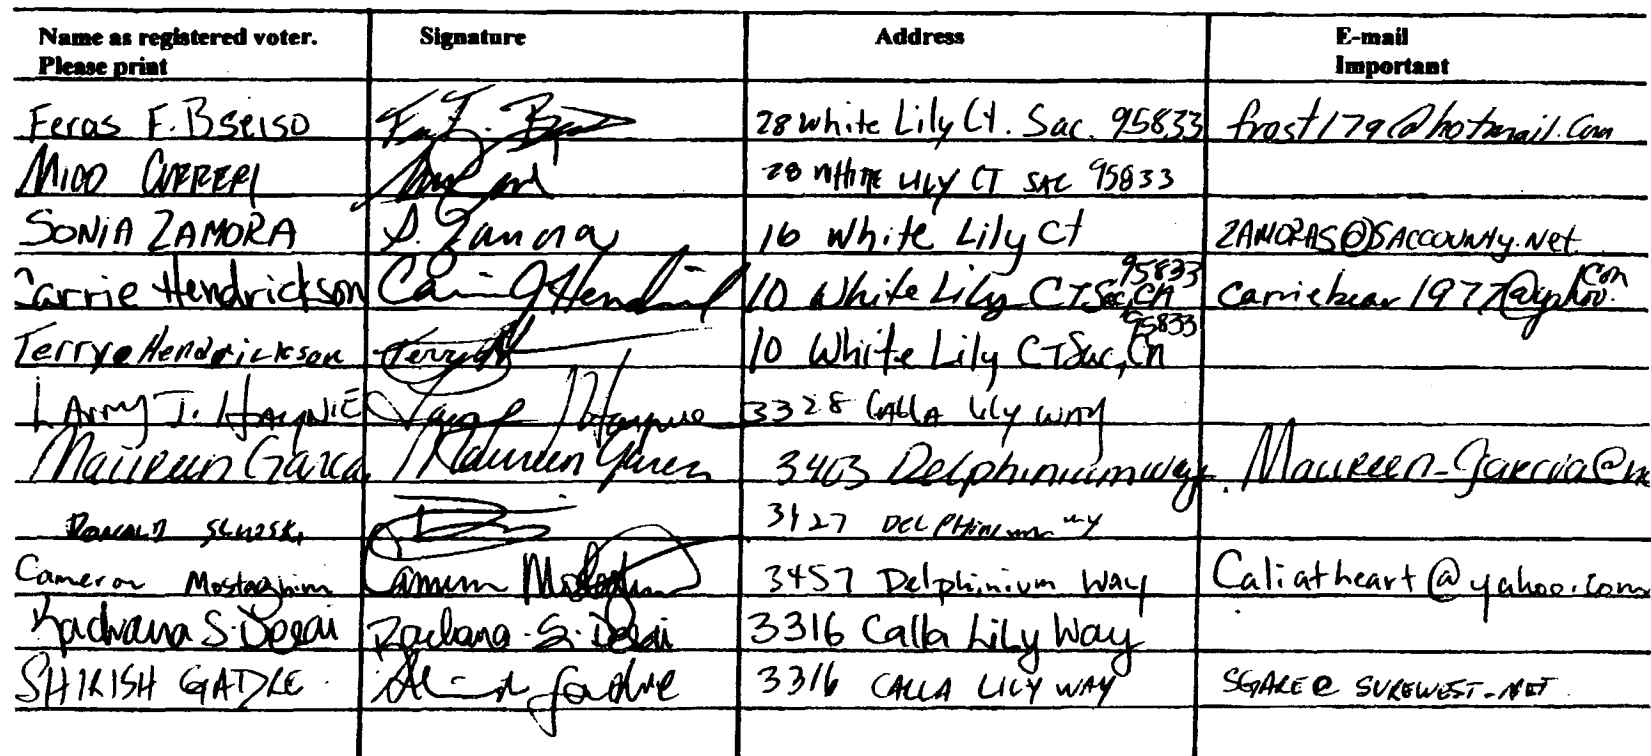 Name as registered voter. Signature Address E-mail
Please print Important
Feras F. Bseiso 28 White Lily Ct. Sac. 95833 frost179@hotmail.com
28 White Lily CT SAC 95833
SONIA ZAMORA S. Zamora 16 White Lily Ct ZAMORAS@SACCOUNTY.Net
95833 com
Carrie Hendrickson 10 White Lily CT Sac, CA carriebear1977@yahoo.
95833
Terrye Hendrickson 10 White Lily CT Sac, CA
LArry J. HAYNIE 3328 CAllA lily WAY
Maureen Garcia Maureen Garcia 3403 Delphinium way Maureen-Garcia@
DONALD 3427 DELPHINIUM WY
Cameron Mostaghim Cameron Mostaghim 3457 Delphinium Way Caliatheart@yahoo.com
Rachana S. Desai Rachana S. Desai 3316 Calla Lily Way
SHIRISH GADRE 3316 CALLA LILY WAY SGARE@SUREWEST.NET